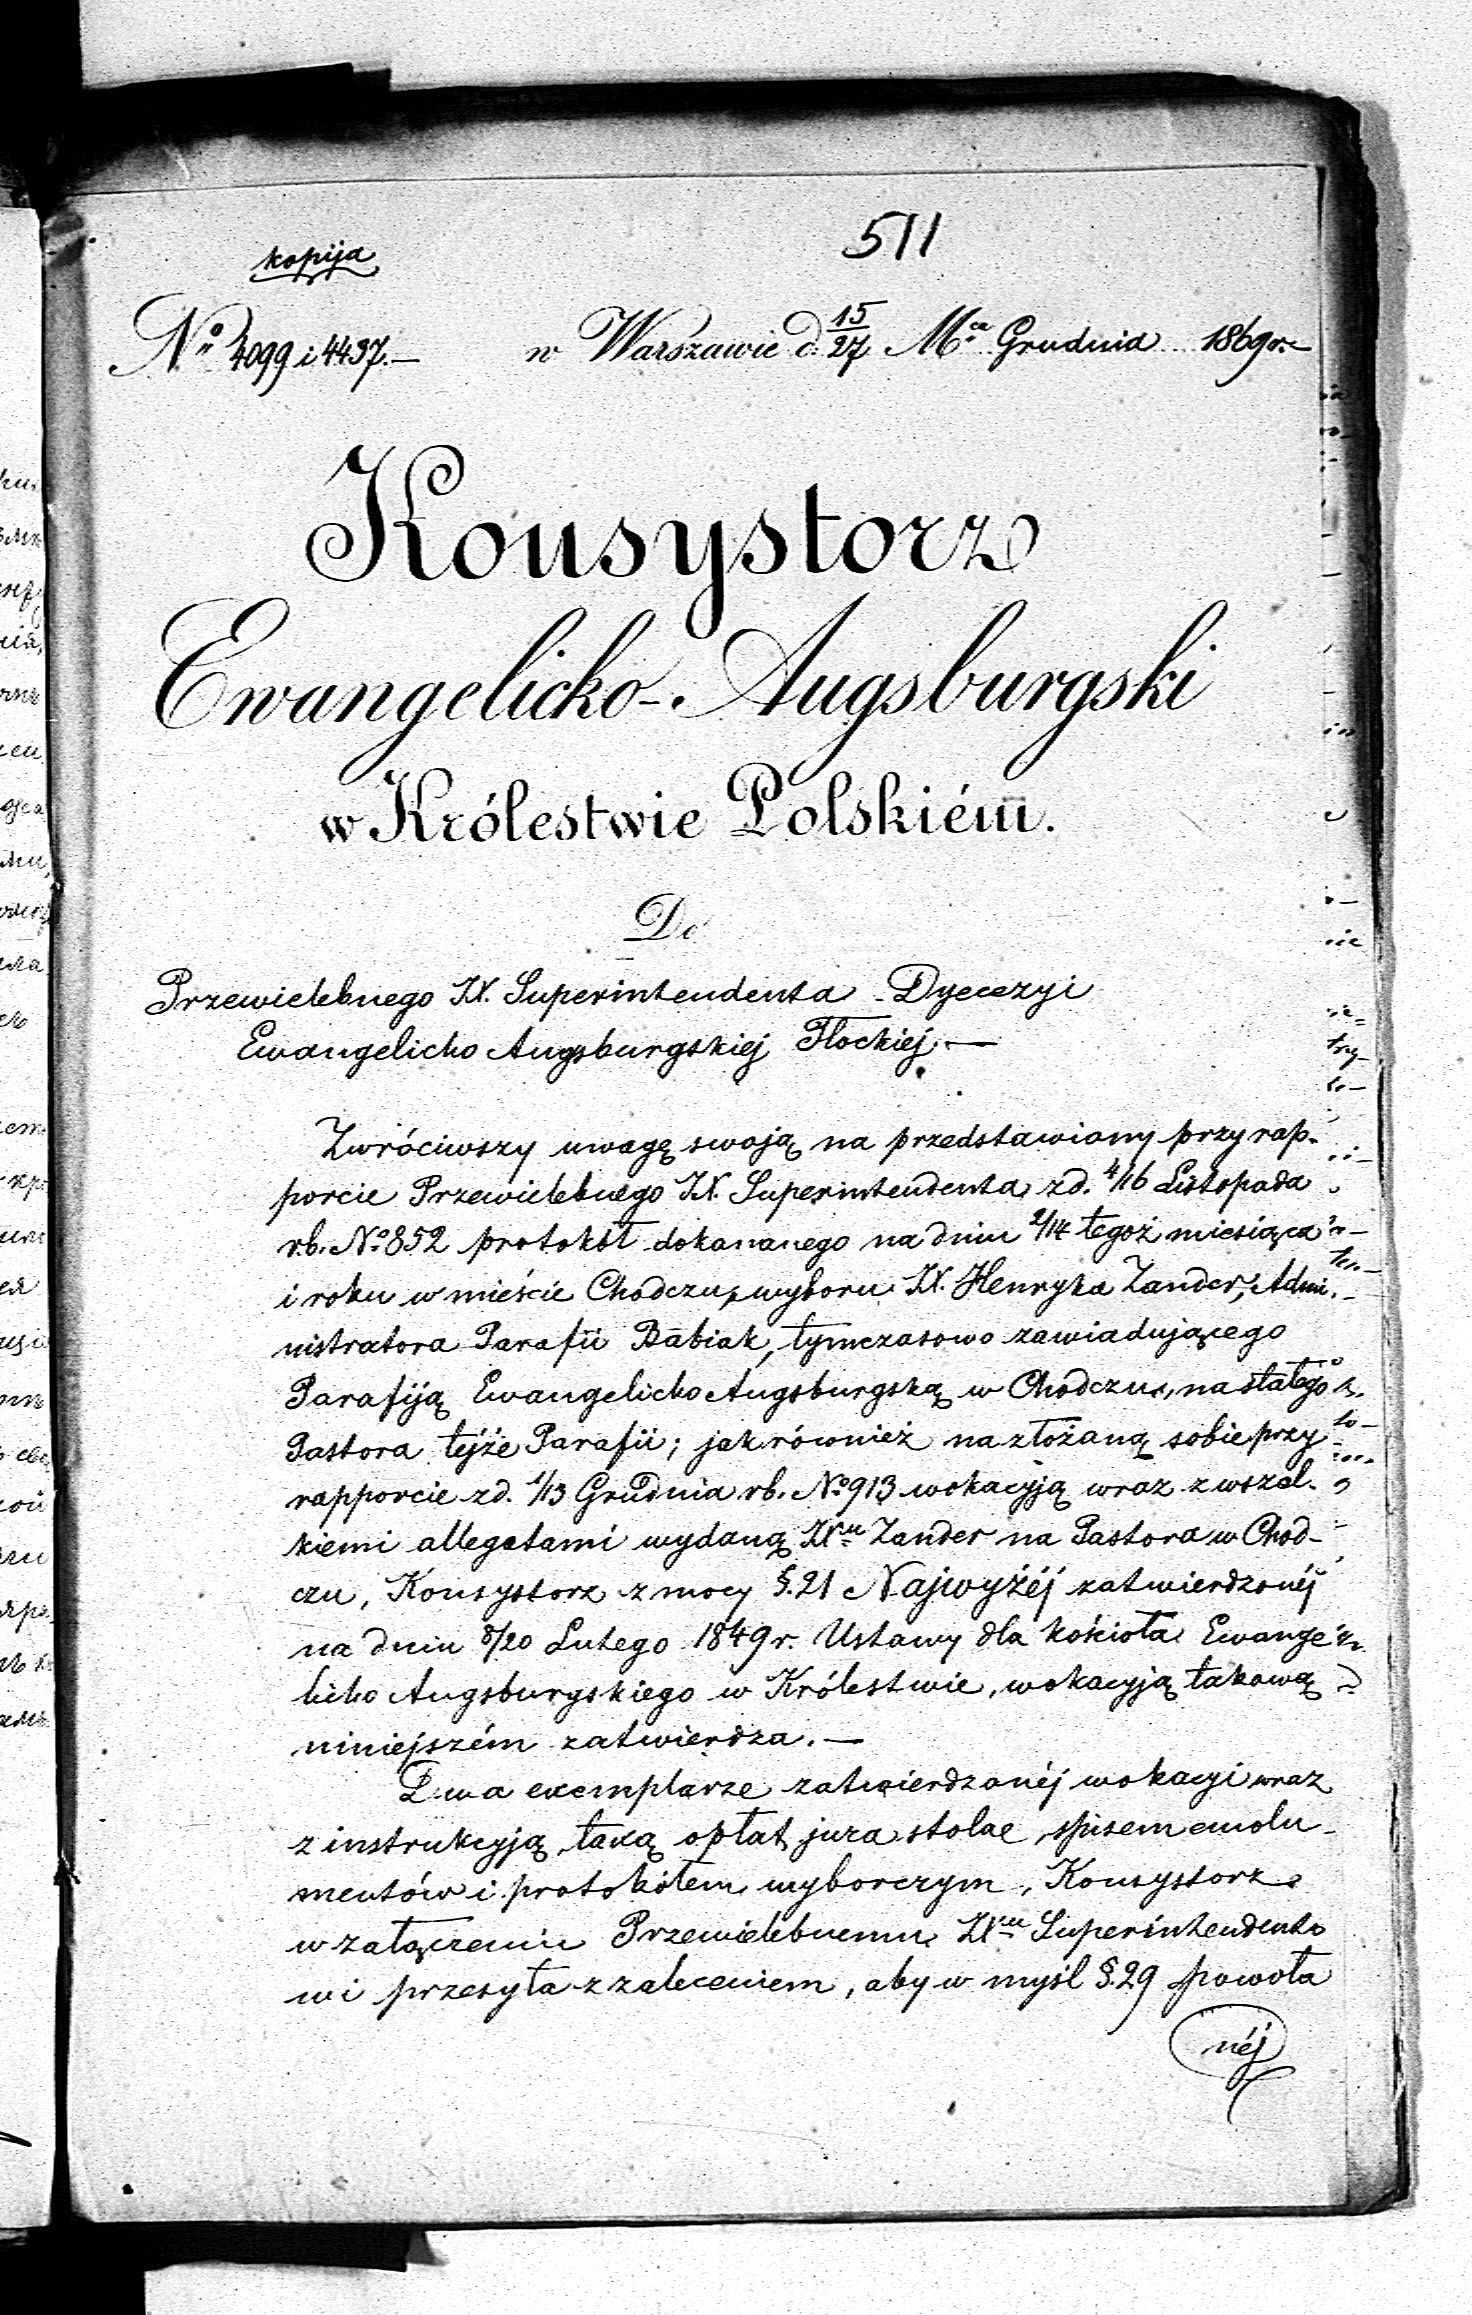 511
kopija
No 4099 i 4437.—
w Warszawie d. 15/27 Mca Grudnia 1869 r.
Konsystorz
Ewangelicko-Augsburgski
w Królestwie Polskiém.
Do
Przewielebnego XX. Superintendenta Dyecezyi
Ewangelicko Augsburgskiej Płockiej.—
Zwróciwszy uwagę swoją na przedstawiony przy rap-
porcie Przewielebnego XX. Superintendenta z d. 4/16 Listopada
r.b. No 852 protokół dokonanego na dniu 2/14 tegoż miesiąca
i roku w mieście Chodczu, wyboru XX. Henryka Zander, Admi-
nistratora Parafii Babiak, tymczasowo zawiadującego
Parafiją Ewangelicko Augsburgską w Chodczu, na stałego
Pastora tejże Parafii; jak również na złożoną sobie przy
rapporcie z d. 1/13 Grudnia rb. No 913 wokacyją wraz z wszel-
kiemi allegatami wydaną XXu Zander na Pastora w Chod-
czu, Konsystorz z mocy §. 21 Najwyżéj zatwierdzonéj
na dniu 8/20 Lutego 1849 r. Ustawy dla kościoła Ewange-
licko Augsburgskiego w Królestwie, wokacyją takową
niniejszém zatwierdza.—
Dwa exemplarze zatwierdzonéj wokacyi wraz
z instrukcyją, taxą opłat jura stolae, spisem emolu-
mentów i protokółem wyborczym, Konsystorz
w załączeniu Przewielebnemu XXu Superintendento
wi przesyła z zaleceniem, aby w myśl §. 29 powoła
néj